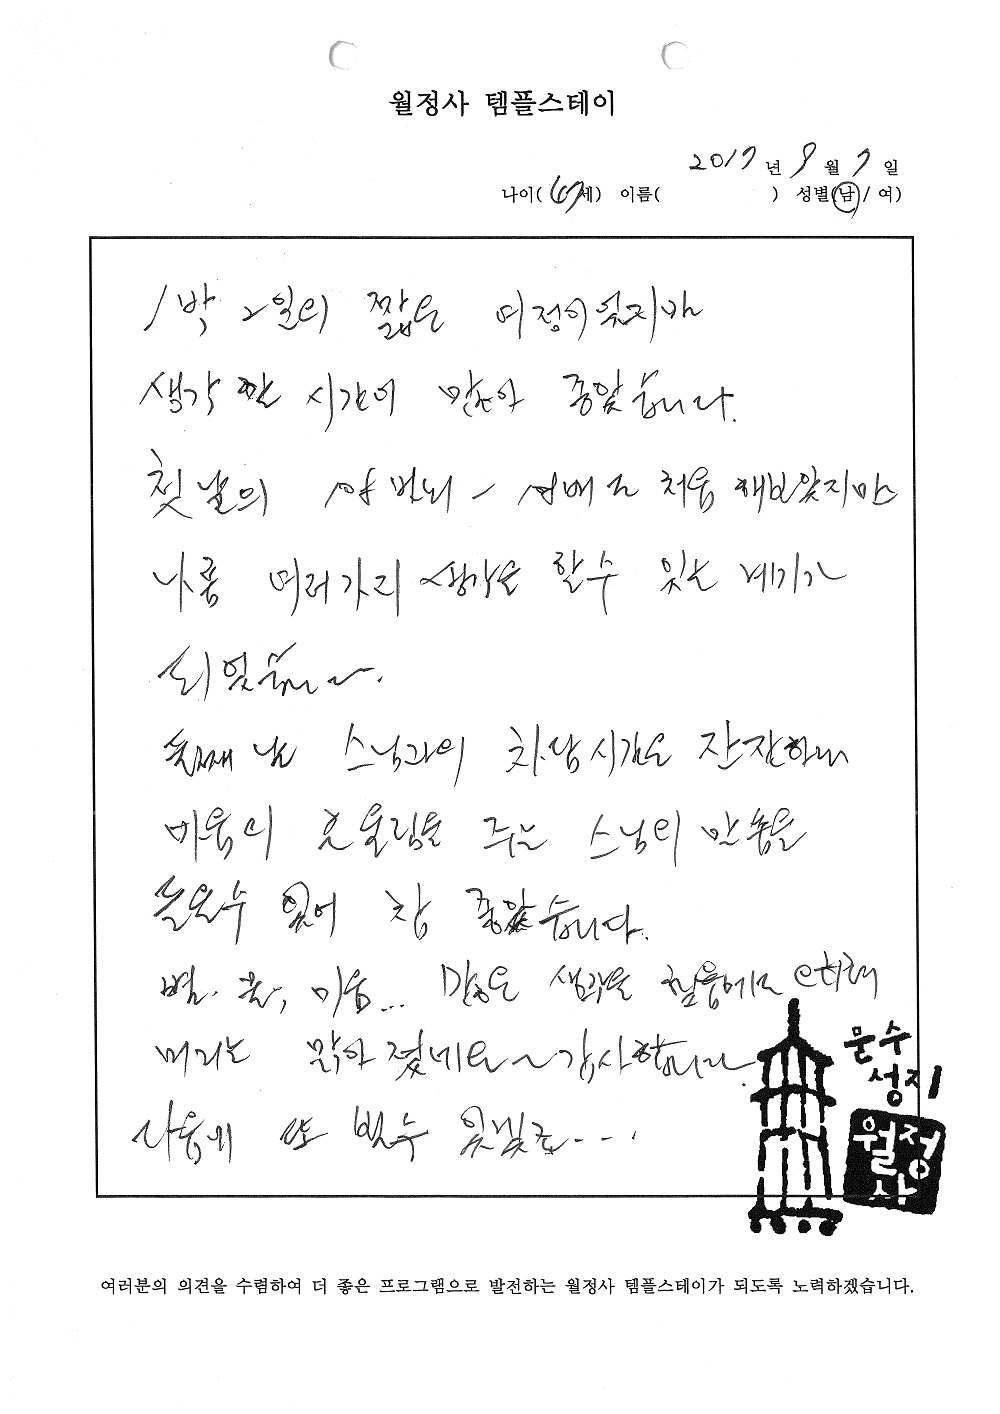 월정사 템플스테이
2017년 9월 7일
나이(47세) 이름( ) 성별(남/여)
1박 2일의 짧은 여정이였지만
생각 할 시간이 많아 좋았습니다.
첫날의 처음 해보았지만
나름 여러가지 생각을 할수 있는 계기가
되었습니다.
둘째 날 스님과의 차담시간은 잔잔하며
마음의 울림을 주는 스님의 말씀을
들을수 있어 참 좋았습니다.
별, 물, 마음... 많은 생각을
머리는 맑아 졌네요~감사합니다.
다음에 또 볼수 있겠죠....
문수
성지
월정
사
여러분의 의견을 수렴하여 더 좋은 프로그램으로 발전하는 월정사 템플스테이가 되도록 노력하겠습니다.